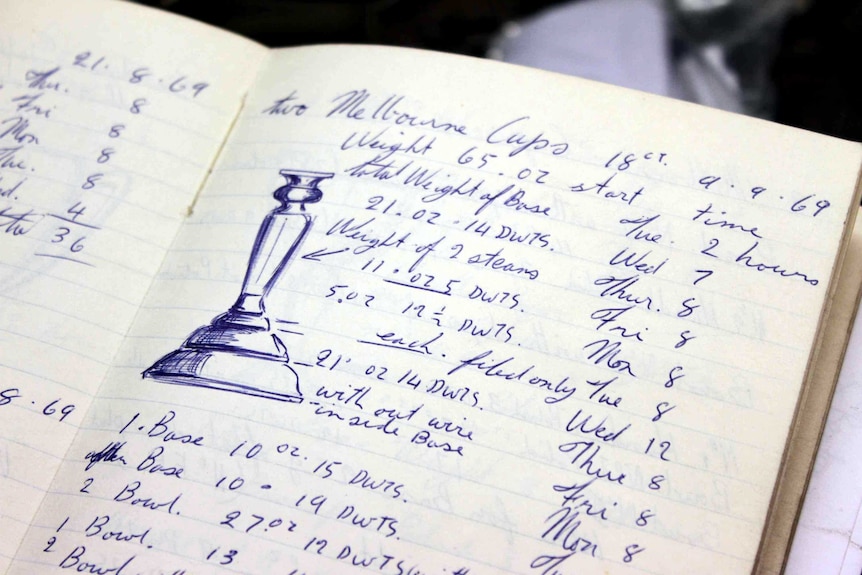 21. 8. 69
Thu. 8
Fri 8
Mon 8
Tue. 8
4
36
8. 69
two Melbourne Cups 18 CT. 9. 9. 69
Weight 65. oz start time
total Weight of Base Tue. 2 hours
21. oz. 14 DWTS. Wed 7
Weight of 2 steams Thur. 8
11. oz 5 DWTS. Fri 8
5. oz 12½ DWTS. Mon 8
each. filed only Tue 8
21. oz 14 DWTS. Wed 12
with out wire Thur 8
inside Base Fri 8
1. Base 10 oz. 15 DWTS. Mon 8
Base 10. 19 DWTS.
2 Bowl. 27. oz 12 DWTS
1 Bowl. 13
2 Bowl.